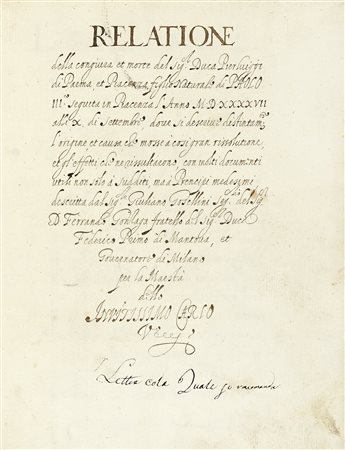 RELATIONE
della congiura et morte del Sig.r Duca Pierluiggi
di Parma, et Piacenza figlio Naturale di PAOLO
III.o seguita in Piacenza l'Anno MDXXXXVII
alli X. di Settembre, dove si descrive distintam.te
l'origine et cause che mosse à cosi gran rissolutione,
et gl'effetti che ne
utili non solo à sudditi, ma à Prencipi medesimi
descritta dal Sig.r Giuliano Gosellini Seg.rio del Sig.r
D. Ferrando Gonzaga fratello del Sig.r Duca
Federico Primo di Mantoua, et
Governatore di Melano
per la Maestà
dello
INVITISSIMO CARLO
Lettra cola Quale